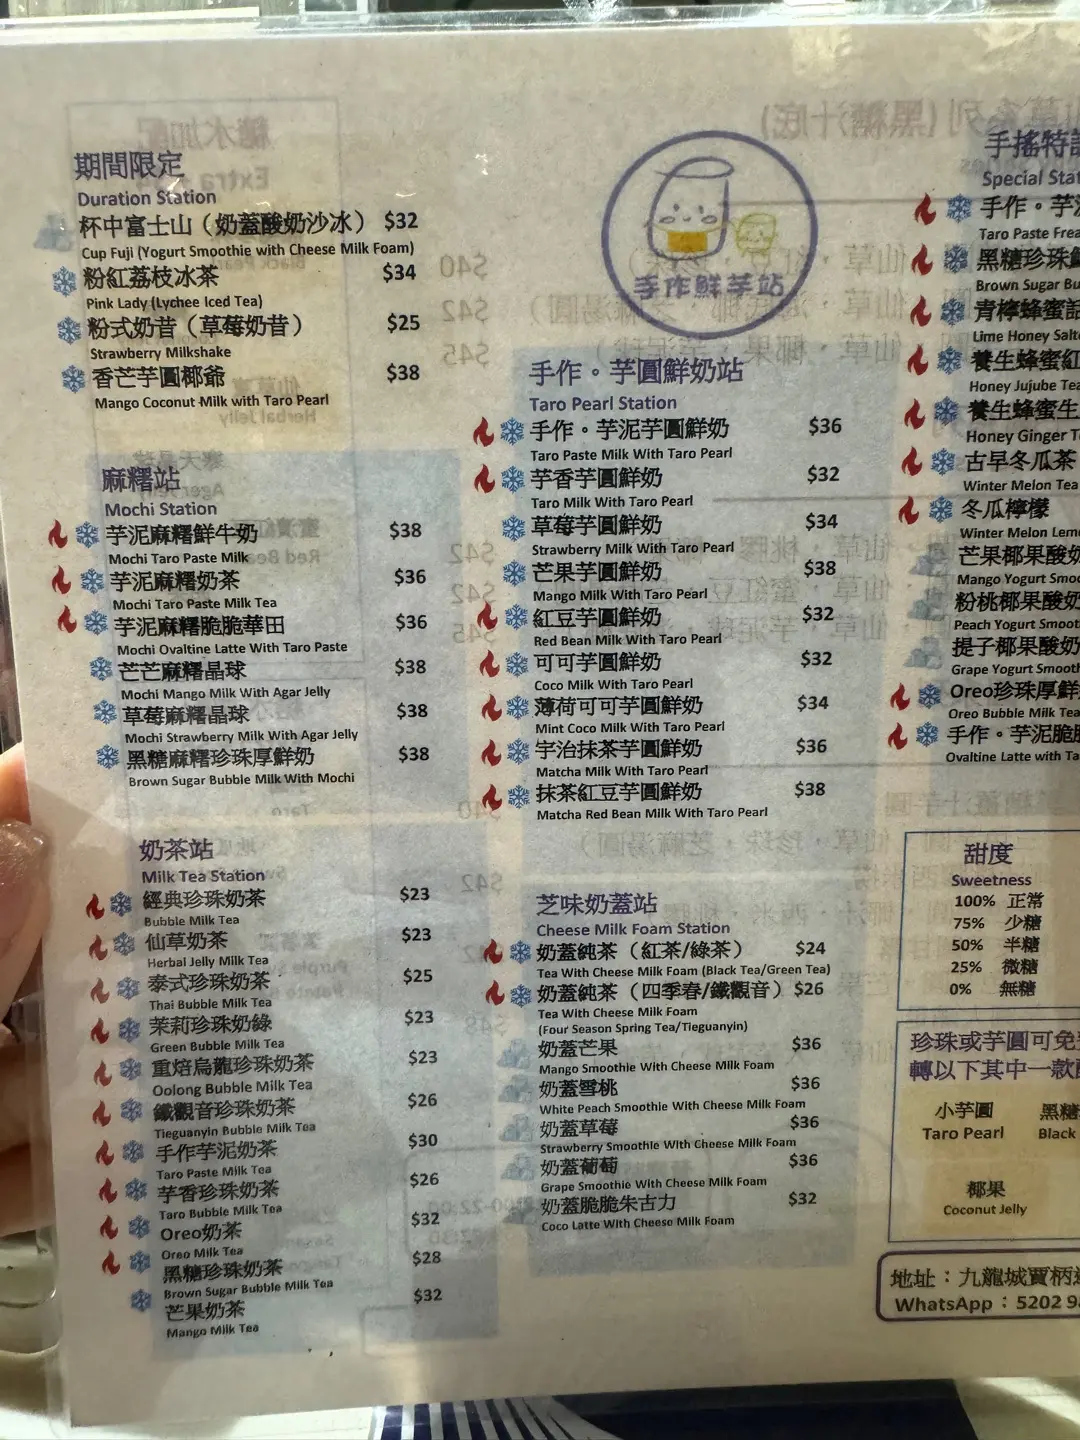 期間限定
Duration Station
杯中富士山（奶蓋酸奶沙冰） $32
Cup Fuji (Yogurt Smoothie with Cheese Milk Foam)
粉紅荔枝冰茶 $34
Pink Lady (Lychee Iced Tea)
粉式奶昔（草莓奶昔） $25
Strawberry Milkshake
香芒芋圓椰爺 $38
Mango Coconut Milk with Taro Pearl
麻糬站
Mochi Station
芋泥麻糬鮮牛奶 $38
Mochi Taro Paste Milk
芋泥麻糬奶茶 $36
Mochi Taro Paste Milk Tea
芋泥麻糬脆脆華田 $36
Mochi Ovaltine Latte With Taro Paste
芒芒麻糬晶球 $38
Mochi Mango Milk With Agar Jelly
草莓麻糬晶球 $38
Mochi Strawberry Milk With Agar Jelly
黑糖麻糬珍珠厚鮮奶 $38
Brown Sugar Bubble Milk With Mochi
奶茶站
Milk Tea Station
經典珍珠奶茶 $23
Bubble Milk Tea
仙草奶茶 $23
Herbal Jelly Milk Tea
泰式珍珠奶茶 $25
Thai Bubble Milk Tea
茉莉珍珠奶綠 $23
Green Bubble Milk Tea
重焙烏龍珍珠奶茶 $23
Oolong Bubble Milk Tea
鐵觀音珍珠奶茶 $26
Tieguanyin Bubble Milk Tea
手作芋泥奶茶 $30
Taro Paste Milk Tea
芋香珍珠奶茶 $26
Taro Bubble Milk Tea
Oreo奶茶 $32
Oreo Milk Tea
黑糖珍珠奶茶 $28
Brown Sugar Bubble Milk Tea
芒果奶茶 $32
Mango Milk Tea
手作鮮芋站
手作。芋圓鮮奶站
Taro Pearl Station
手作。芋泥芋圓鮮奶 $36
Taro Paste Milk With Taro Pearl
芋香芋圓鮮奶 $32
Taro Milk With Taro Pearl
草莓芋圓鮮奶 $34
Strawberry Milk With Taro Pearl
芒果芋圓鮮奶 $38
Mango Milk With Taro Pearl
紅豆芋圓鮮奶 $32
Red Bean Milk With Taro Pearl
可可芋圓鮮奶 $32
Coco Milk With Taro Pearl
薄荷可可芋圓鮮奶 $34
Mint Coco Milk With Taro Pearl
宇治抹茶芋圓鮮奶 $36
Matcha Milk With Taro Pearl
抹茶紅豆芋圓鮮奶 $38
Matcha Red Bean Milk With Taro Pearl
芝味奶蓋站
Cheese Milk Foam Station
奶蓋純茶（紅茶/綠茶） $24
Tea With Cheese Milk Foam (Black Tea/Green Tea)
奶蓋純茶（四季春/鐵觀音） $26
Tea With Cheese Milk Foam
(Four Season Spring Tea/Tieguanyin)
奶蓋芒果 $36
Mango Smoothie With Cheese Milk Foam
奶蓋雪桃 $36
White Peach Smoothie With Cheese Milk Foam
奶蓋草莓 $36
Strawberry Smoothie With Cheese Milk Foam
奶蓋葡萄 $36
Grape Smoothie With Cheese Milk Foam
奶蓋脆脆朱古力 $32
Coco Latte With Cheese Milk Foam
手搖特
Special
手作。芋
Taro Paste
黑糖珍珠
Brown Sugar
青檸蜂蜜
Lime Honey
養生蜂蜜紅
Honey Jujube Tea
養生蜂蜜生
Honey Ginger
古早冬瓜茶
Winter Melon Tea
冬瓜檸檬
Winter Melon
芒果椰果酸奶
Mango Yogurt
粉桃椰果酸奶
Peach Yogurt
提子椰果酸奶
Grape Yogurt
Oreo珍珠厚鮮
Oreo Bubble Milk
手作。芋泥脆
Ovaltine Latte with
甜度
Sweetness
100% 正常
75% 少糖
50% 半糖
25% 微糖
0% 無糖
珍珠或芋圓可免
轉以下其中一款
小芋圓 黑糖
Taro Pearl Black
椰果
Coconut Jelly
地址：九龍城賈炳
WhatsApp：5202